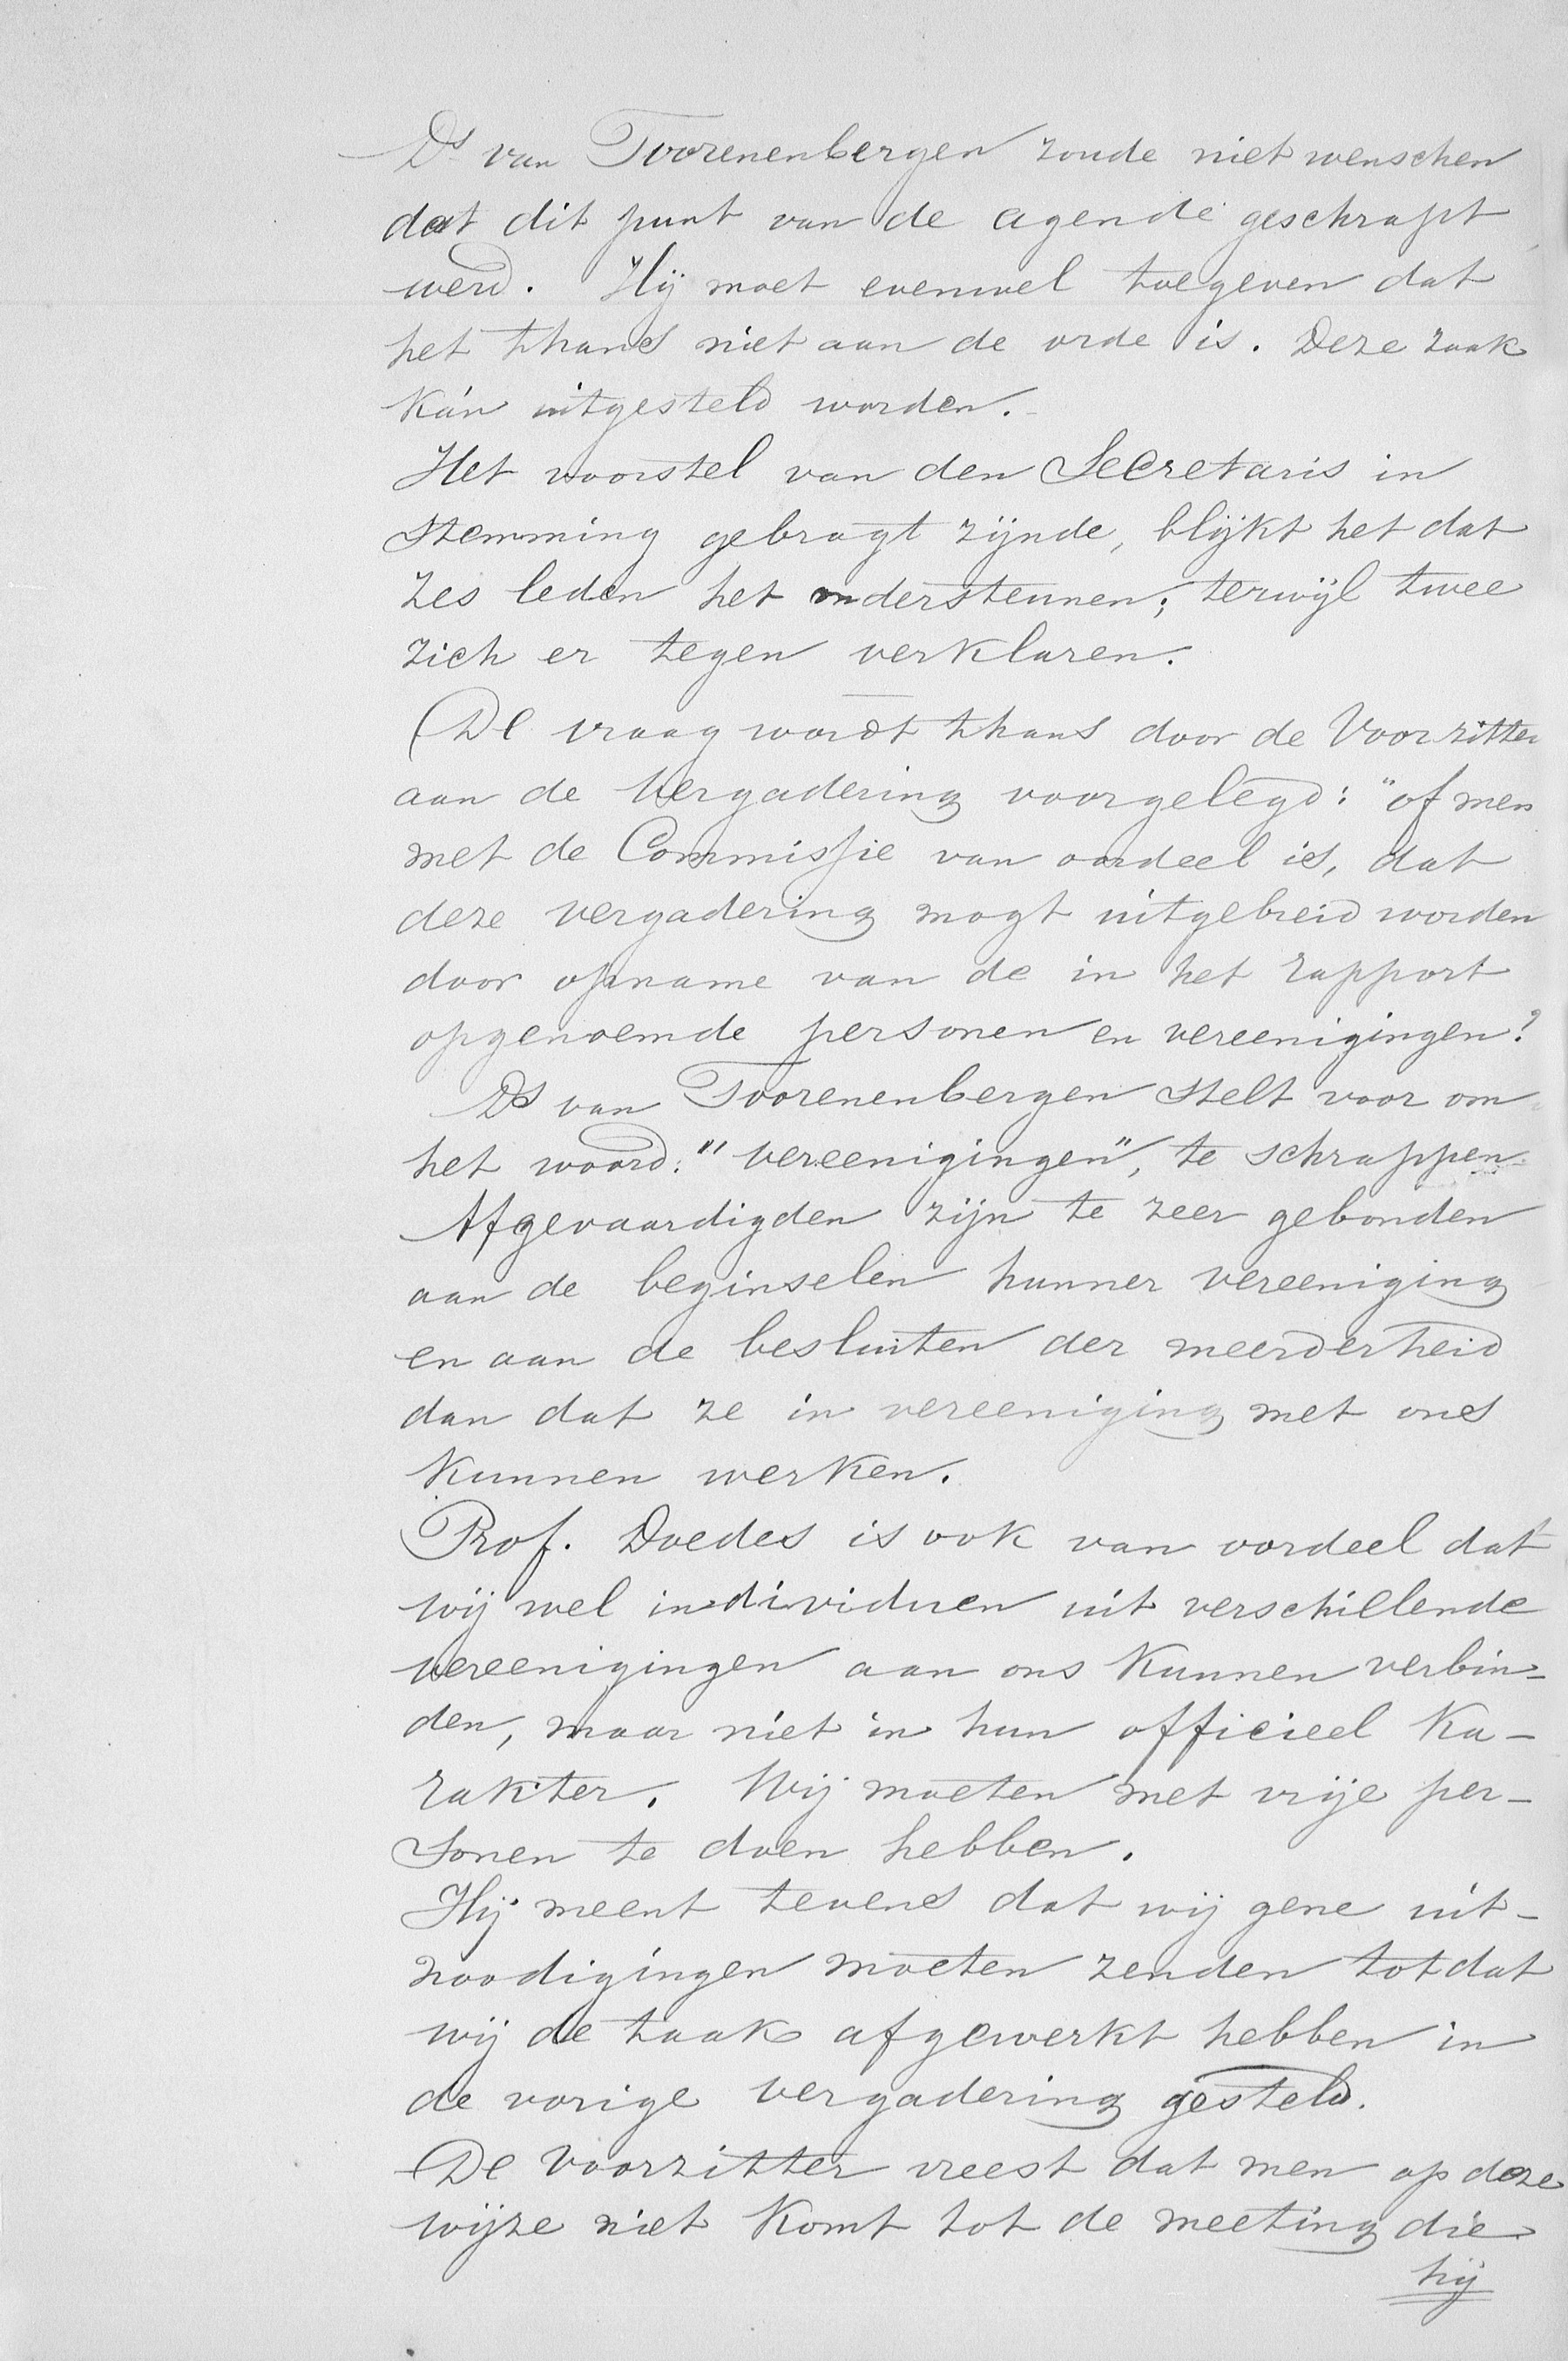 Ds van Toorenenbergen zoude niet wenschen
dat dit punt van de agende geschrapt
werd. Hij moet evenwel toegeven dat
het thans niet aan de orde is. Deze zaak
kán uitgesteld worden.
Het voorstel van den Secretaris in
stemming gebragt zijnde, blijkt het dat
zes leden het ondersteunen; terwijl twee
zich er tegen verklaren.
De vraag wordt thans door de Voorzitter
aan de Vergadering voorgelegd: "of men
met de Commissie van oordeel is, dat
deze vergadering mogt uitgebreid worden
door opname van de in het rapport
opgenoemde personen en vereenigingen?
Ds van Toorenenbergen stelt voor om
het woord: "vereenigingen", te schrappen.
Afgevaardigden zijn te zeer gebonden
aan de beginselen hunner vereeniging
en aan de besluiten der meerderheid
dan dat ze in vereeniging met ons
kunnen werken.
Prof. Doedes is ook van oordeel dat
wij wel individuen uit verschillende
vereenigingen aan ons kunnen verbin-
den, maar niet in hun officieel ka-
rakter. Wij moeten met vrije per-
sonen te doen hebben.
Hij meent tevens dat wij gene uit-
noodigingen moeten zenden totdat
wij de taak afgewerkt hebben in
de vorige vergadering gesteld.
De Voorzitter vreest dat men op deze
wijze niet komt tot de meeting die
hij